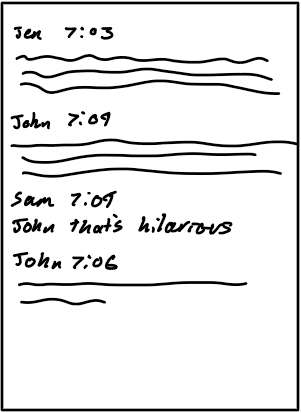 Jen 7:03
John 7:04
Sam 7:04
John that's hilarious
John 7:06